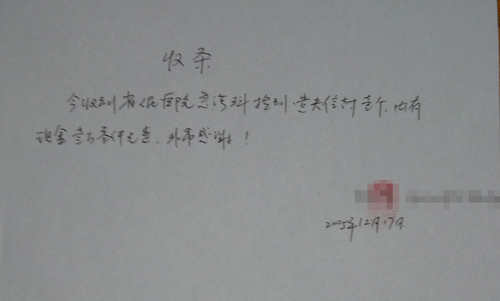 收条
今收到省人民医院急诊科捡到遗失信封壹个，内有
现金壹万叁仟元整，非常感谢！
2005年12月17日